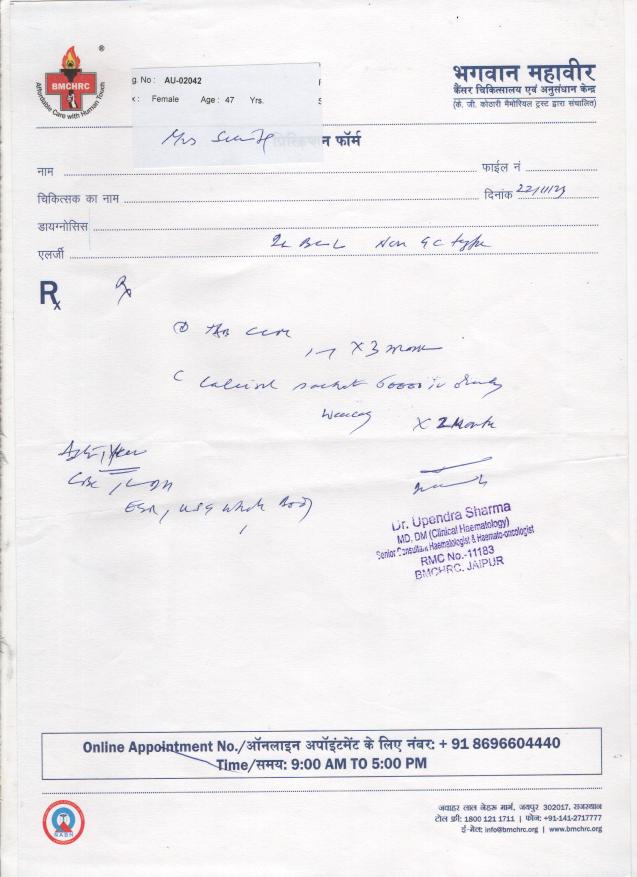 ®
BMCHRC
Affordable Care with Human Touch
g. No : AU-02042
: Female Age : 47 Yrs.
भगवान महावीर
कैंसर चिकित्सालय एवं अनुसंधान केन्द्र
(के. जी. कोठारी मैमोरियल ट्रस्ट द्वारा संचालित)
Mrs
न फॉर्म
नाम फाईल नं
चिकित्सक का नाम दिनांक 22/11/23
डायग्नोसिस
एलर्जी Non GC type
Rx
Rx
① Tab
X 3 month
sachet 60000 IU
X 2 Month
CBC,
ESR, USG Whole Body
Dr. Upendra Sharma
MD, DM (Clinical Haematology)
Senior Consultant Haematologist & Haemato-oncologist
RMC No.-11183
BMCHRC, JAIPUR
Online Appointment No./ऑनलाइन अपॉइंटमेंट के लिए नंबर: + 91 8696604440
Time/समय: 9:00 AM TO 5:00 PM
NABH
जवाहर लाल नेहरू मार्ग, जयपुर 302017, राजस्थान
टोल फ्री: 1800 121 1711 | फोन: +91-141-2717777
ई-मेल: info@bmchrc.org | www.bmchrc.org